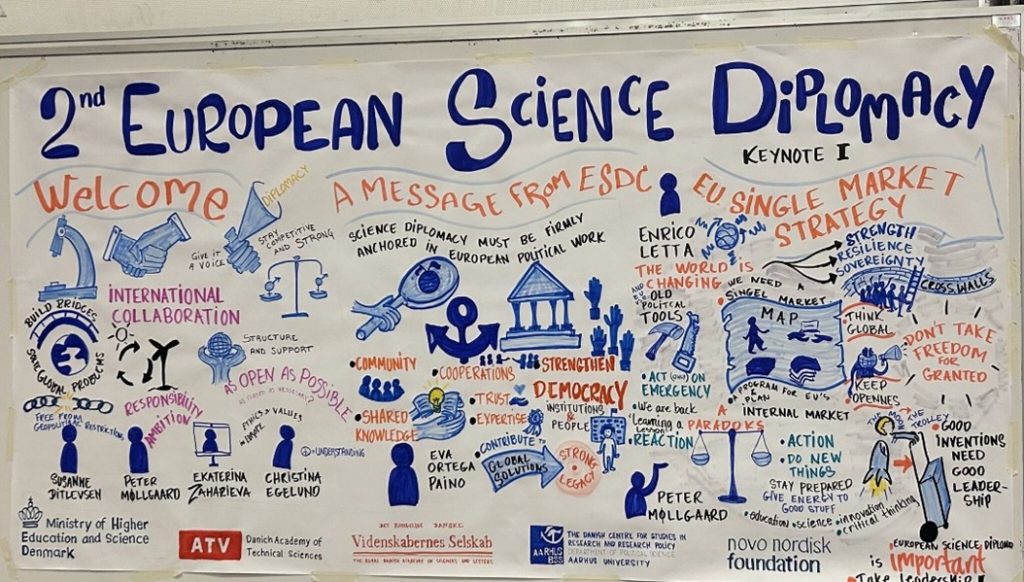 2nd EUROPEAN SCIENCE DIPLOMACY
KEYNOTE I
WELCOME
DIPLOMACY
GIVE IT
A VOICE
STAY
COMPETITIVE
AND STRONG
BUILD BRIDGES
SOLVE GLOBAL PROBLEMS
INTERNATIONAL
COLLABORATION
STRUCTURE
AND SUPPORT
AS OPEN AS POSSIBLE
AS CLOSED AS NECESSARY?
RESPONSIBILITY
AMBITION
FREE FROM
GEOPOLITICAL RESTRICTIONS
ETHICS + VALUES
+ UNDERSTANDING
SUSANNE
DITLEVSEN
PETER
MØLLGAARD
EKATERINA
ZAHARIEVA
CHRISTINA
EGELUND
A MESSAGE FROM ESDC
SCIENCE DIPLOMACY MUST BE FIRMLY
ANCHORED IN
EUROPEAN POLITICAL WORK
• COMMUNITY
• COOPERATIONS
• STRENGTHEN
DEMOCRACY
INSTITUTIONS
&
PEOPLE
• SHARED
KNOWLEDGE
• TRUST
• EXPERTISE
EVA
ORTEGA
PAINO
CONTRIBUTE TO
GLOBAL
SOLUTIONS
STRONG
LEGACY
EU SINGLE MARKET
STRATEGY
ENRICO
LETTA
THE WORLD IS
CHANGING
OLD
POLITCAL
TOOLS
WE NEED A
SINGEL MARKET
MAP
• PROGRAM FOR EU'S
PLAN
INTERNAL MARKET
STRENGTH
RESILIENCE
SOVEREIGNTY
CROSS WALLS
• THINK
GLOBAL
KEEP
OPENNES
DON'T TAKE
FREEDOM
FOR
GRANTED
• ACT (ONLY) ON
EMERGENCY
• We are back
Learning a
Lesson
• REACTION
A
PARADOKS
• ACTION
• DO NEW
THINGS
STAY PREPARED
GIVE ENERGY TO
GOOD STUFF
• education • science • innovation
• critical thinking
PETER
MØLLGAARD
THE TROLLEY
• GOOD
INVENTIONS
NEED
GOOD
LEADER-
SHIP
EUROPEAN SCIENCE DIPLOMA
is important
• Take Leadership
Ministry of Higher
Education and Science
Denmark
ATV
Danish Academy of
Technical Sciences
DET KONGELIGE DANSKE
Videnskabernes Selskab
THE ROYAL DANISH ACADEMY OF SCIENCES AND LETTERS
AARHUS
THE DANISH CENTRE FOR STUDIES IN
RESEARCH AND RESEARCH POLICY
DEPARTMENT OF POLITICAL SCIENCE
AARHUS UNIVERSITY
novo nordisk
foundation